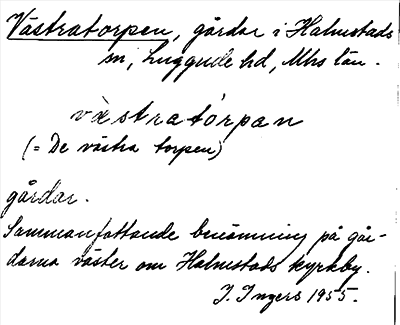 Västratorpen, gårdar i Halmstads
sn, Luggude hd, Mhs län.
væstratórpan
(= De västra torpen)
gårdar.
Sammanfattande benämning på går-
darna väster om Halmstads kyrkby.
I. Ingers 1955.